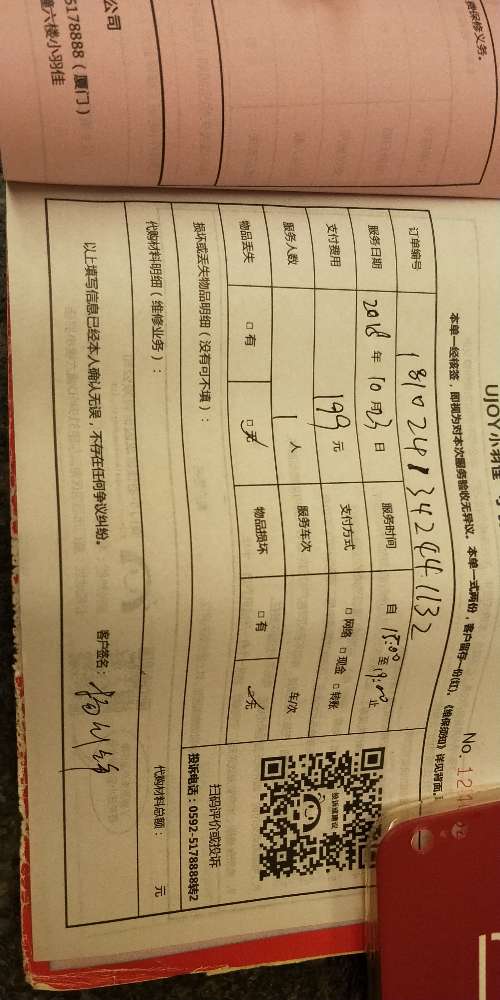 费保修义务。
公司
5178888（厦门）
幢六楼小羽佳
UJOY小羽佳
No. 121
本单一经核签，即视为对本次服务验收无异议。本单一式两份，客户留存一份(红)。《维保须知》详见背面。
订单编号 1810241342441132
服务日期 2018 年 10 月 23 日 服务时间 自 15:00 至 19:00 止
支付费用 199 元 支付方式 □ 网络 □ 现金 □ 转账
服务人数 1 人 服务车次 车/次
物品丢失 □ 有 □ 无 物品损坏 □ 有 □ 无
损坏或丢失物品明细（没有可不填）：
投诉或建议
扫码评价或投诉
投诉电话：0592-5178888转2
代购材料明细（维修业务）： 代购材料总额： 元
以上填写信息已经本人确认无误，不存在任何争议纠纷。 客户签名：